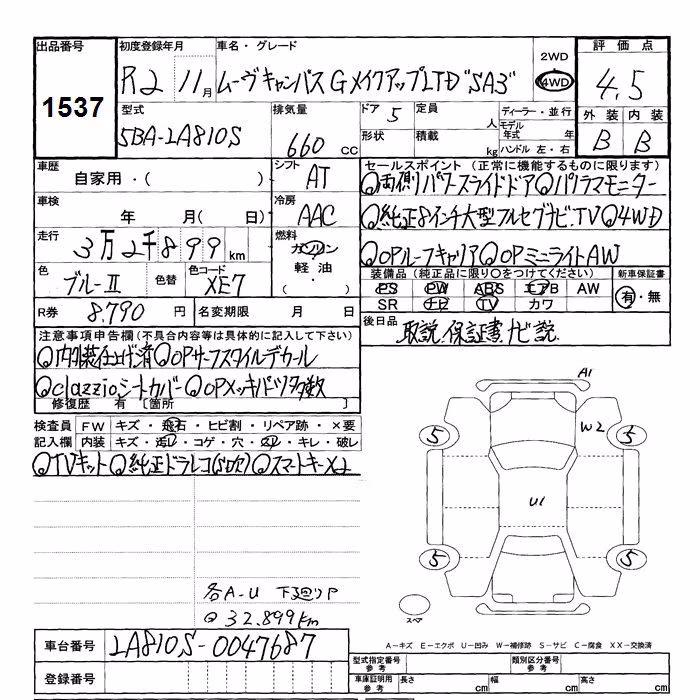 出品番号 1537
初度登録年月 R2 11月
車名・グレード ムーヴキャンバス GメイクアップLTD "SA3"
2WD 4WD
評価点 4.5
外装 B 内装 B
型式 5BA-LA810S
排気量 660 CC
ドア 5
形状
定員 人
積載 kg
ディーラー・並行
モデル年式 年
ハンドル 左・右
車歴 自家用・( )
シフト AT
車検 年 月( 日)
冷房 AAC
走行 3万2千899km
燃料 ガソリン 軽油・( )
色 ブルーⅡ 色替
色コード XE7
R券 8,790円
名変期限 月 日
セールスポイント (正常に機能するものに限ります)
◎両側パワースライドドア◎パノラマモニター
◎純正8インチ大型フルセグナビ.TV◎4WD
◎OPルーフキャリア◎OPミニライトAW
装備品(純正品に限り〇をつけてください)
PS PW ABS エアB AW
SR ナビ TV カワ
新車保証書 有・無
後日品 取説 保証書 ナビ説
注意事項申告欄(不具合内容等は具体的に記入して下さい)
◎内外装仕上げ済◎OPサーフスタイルデカール
◎clazzioシートカバー◎OPメッキパーツ多数
修復歴 有 [箇所
検査員記入欄
FW キズ・飛石・ヒビ割・リペア跡・×要
内装 キズ・汚レ・コゲ・穴・スレ・キレ・破レ
◎TVキット◎純正ドラレコ(S欠)◎スマートキーX2
各A-U 下廻りP
◎32.899km
A1
W2
U1
5 5
5 5
スペア
A-キズ E-エクボ U-凹み W-補修跡 S-サビ C-腐食 XX-交換済
車台番号 LA810S-0047687
登録番号
型式指定番号 参考
類別区分番号 参考
車庫証明用 参考 長さ cm 幅 cm 高さ cm